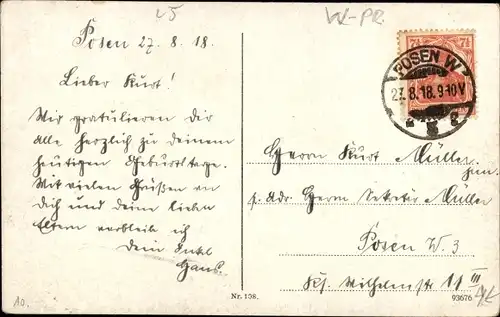 25
W-PR.
Posen 27.8.18.
Lieber Kurt!
Wir gratulieren Dir
alle herzlich zu deinem
heutigen Geburtstage.
Mit vielen Grüßen an
Dich und deine lieben
Eltern verbleibe ich
Dein Onkel
Hans.
7½ 7½
POSEN W
27.8.18.9-10V
Herrn Kurt Müller
jun.
p. Adr. Herrn Sekretär Müller
Posen W. 3
Ks. Wilhelmstr 11 III
Nr. 108.
93676